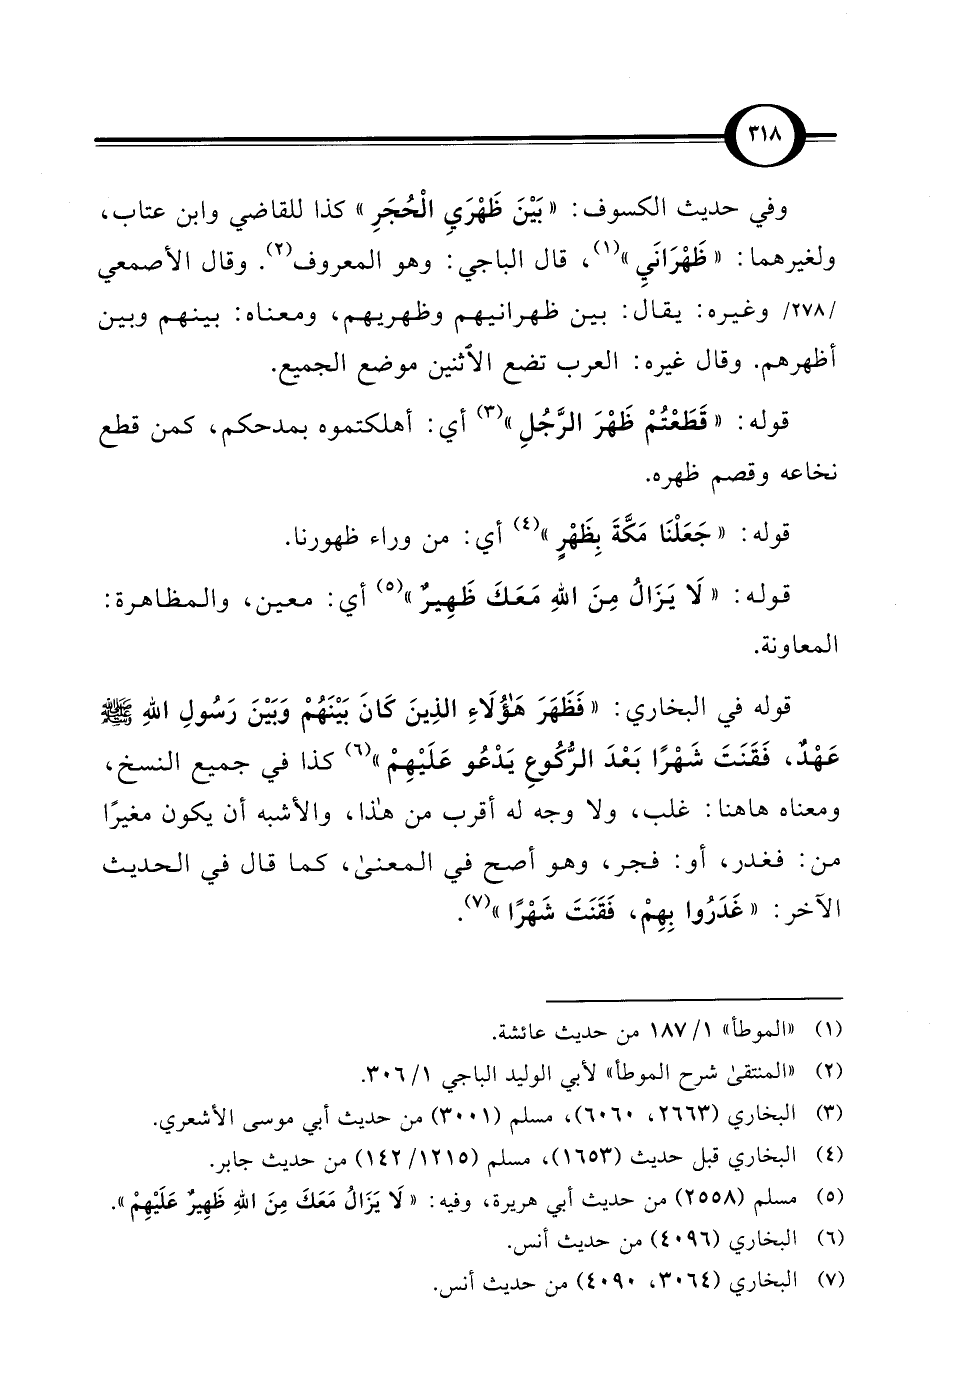 ٣١٨
وفي حديث الكسوف: « بَيْنَ ظَهْرَيِ الْحُجَرِ » كذا للقاضي وابن عتاب،
ولغيرهما: « ظَهْرَانَيِ »(١)، قال الباجي: وهو المعروف(٢). وقال الأصمعي
/٢٧٨/ وغيره: يقال: بين ظهرانيهم وظهريهم، ومعناه: بينهم وبين
أظهرهم. وقال غيره: العرب تضع الاثنين موضع الجميع.
قوله: « قَطَعْتُمْ ظَهْرَ الرَّجُلِ »(٣) أي: أهلكتموه بمدحكم، كمن قطع
نخاعه وقصم ظهره.
قوله: « جَعَلْنَا مَكَّةَ بِظَهْرٍ »(٤) أي: من وراء ظهورنا.
قوله: « لَا يَزَالُ مِنَ اللهِ مَعَكَ ظَهِيرٌ »(٥) أي: معين، والمظاهرة:
المعاونة.
قوله في البخاري: « فَظَهَرَ هَؤُلَاءِ الذِينَ كَانَ بَيْنَهُمْ وَبَيْنَ رَسُولِ اللهِ ﷺ
عَهْدٌ، فَقَنَتَ شَهْرًا بَعْدَ الرُّكُوعِ يَدْعُو عَلَيْهِمْ »(٦) كذا في جميع النسخ،
ومعناه هاهنا: غلب، ولا وجه له أقرب من هذا، والأشبه أن يكون مغيرًا
من: فغدر، أو: فجر، وهو أصح في المعنى، كما قال في الحديث
الآخر: « غَدَرُوا بِهِمْ، فَقَنَتَ شَهْرًا »(٧).
(١) «الموطأ» ١/ ١٨٧ من حديث عائشة.
(٢) «المنتقى شرح الموطأ» لأبي الوليد الباجي ١/ ٣٠٦.
(٣) البخاري (٢٦٦٣، ٦٠٦٠)، مسلم (٣٠٠١) من حديث أبي موسى الأشعري.
(٤) البخاري قبل حديث (١٦٥٣)، مسلم (١٢١٥/ ١٤٢) من حديث جابر.
(٥) مسلم (٢٥٥٨) من حديث أبي هريرة، وفيه: « لَا يَزَالُ مَعَكَ مِنَ اللهِ ظَهِيرٌ عَلَيْهِمْ ».
(٦) البخاري (٤٠٩٦) من حديث أنس.
(٧) البخاري (٣٠٦٤، ٤٠٩٠) من حديث أنس.